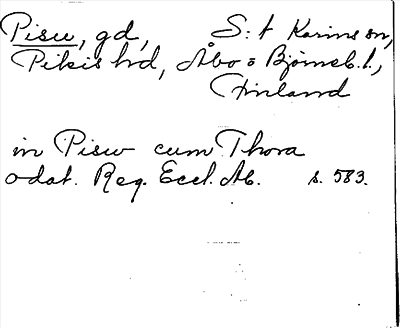 Pisu, gd, S:t Karins sn,
Pikis hd, Åbo o Björneb. l.,
Finland
in Pisw cum Thora
odat. Reg. Eccl. Ab. s. 583.